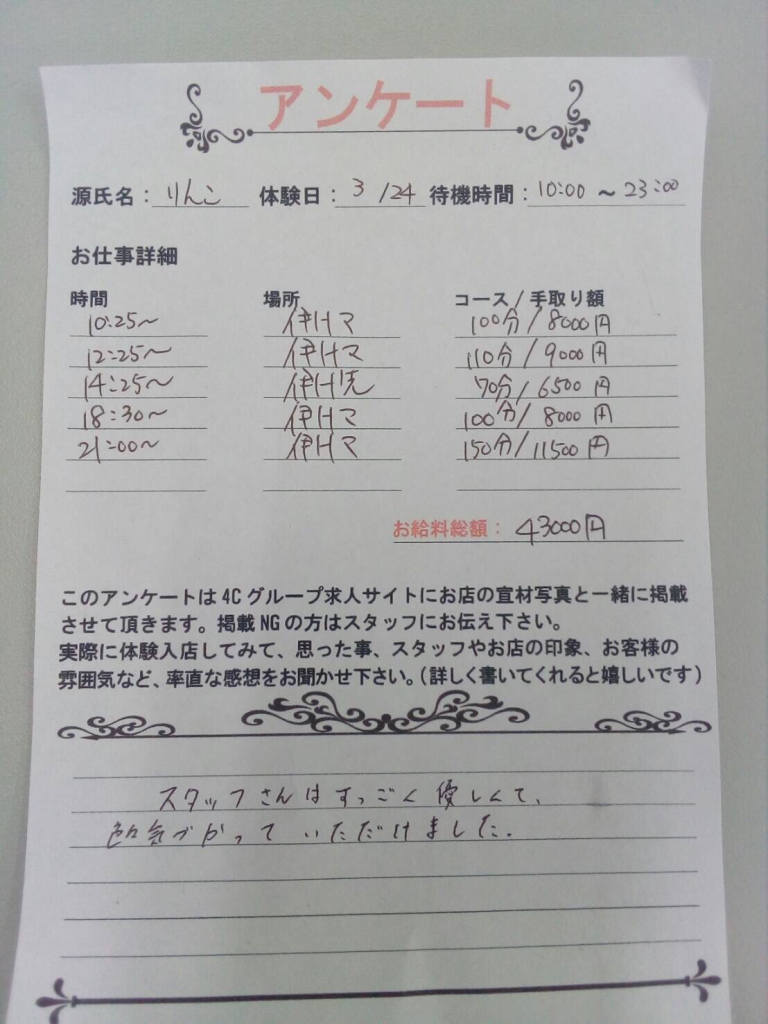 アンケート
源氏名：りんこ 体験日：3/24 待機時間：10:00 ～ 23:00
お仕事詳細
時間 場所 コース/手取り額
10:25～ 伊Hマ 100分/8000円
12:25～ 伊Hマ 110分/9000円
14:25～ 伊H洗 70分/6500円
18:30～ 伊Hマ 100分/8000円
21:00～ 伊Hマ 150分/11500円
お給料総額：43000円
このアンケートは4Cグループ求人サイトにお店の宣材写真と一緒に掲載
させて頂きます。掲載NGの方はスタッフにお伝え下さい。
実際に体験入店してみて、思った事、スタッフやお店の印象、お客様の
雰囲気など、率直な感想をお聞かせ下さい。（詳しく書いてくれると嬉しいです）
スタッフさんはすっごく優しくて、
色々気づかっていただけました。